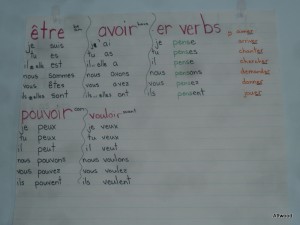 être to be
je suis
tu es
il elle est
nous sommes
vous êtes
ils elles sont
avoir to have
j'ai
tu as
il elle a
nous avons
vous avez
ils elles ont
er verbs
je pense
tu penses
il pense
nous pensons
vous pensez
ils pensent
aimer
arriver
chanter
chercher
demander
donner
jouer
pouvoir
je peux
tu peux
il peut
nous pouvons
vous pouvez
ils peuvent
vouloir want
je veux
tu veux
il veut
nous voulons
vous voulez
ils veulent